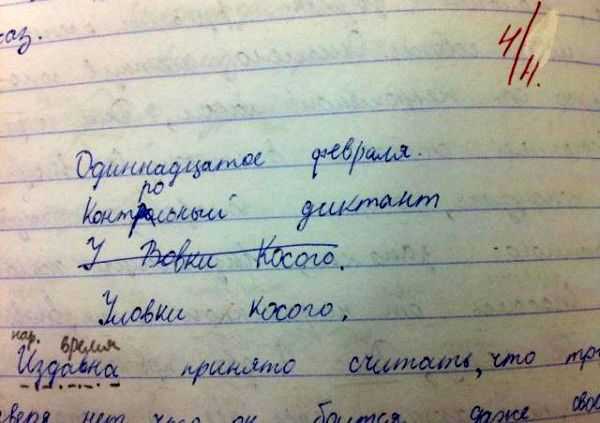 каз.
4/4.
Одиннадцатое февраля.
ро
Контрольный диктант
У Вовки Косого.
Уловки Косого.
нар. время
Издавна принято считать, что тр
зверя нет, чего он боится даже сво